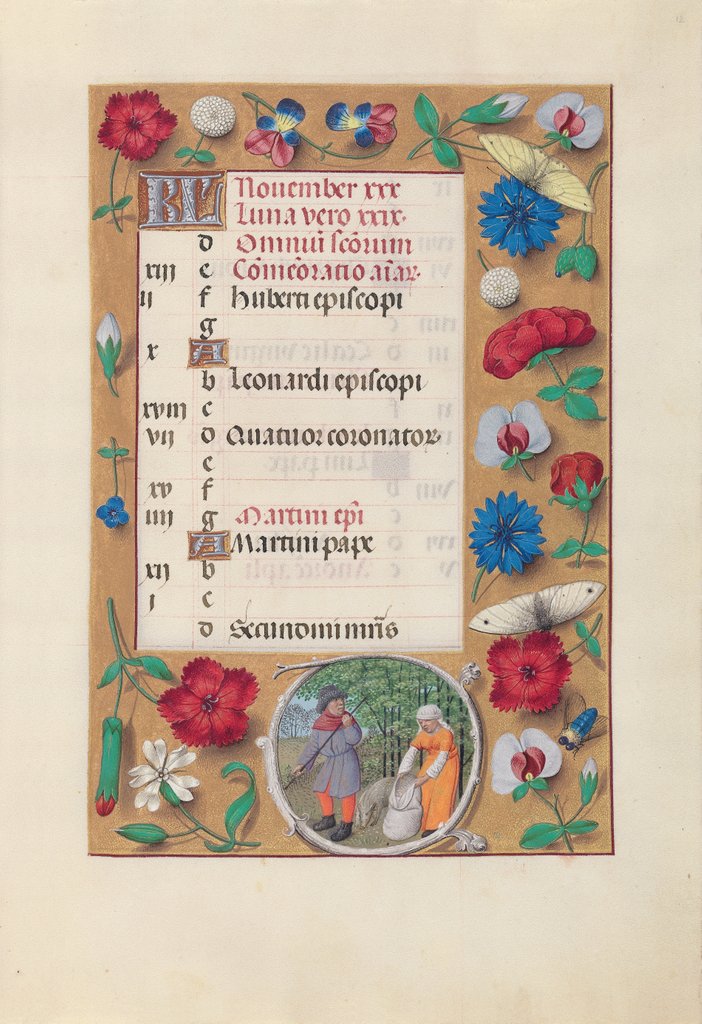 KL Nouember xxx
Luna vero xxix.
d Omniũ scõrum
xiii e Cõmeõratio aīar.
ii f Huberti episcopi
g
x A
b Leonardi episcopi
xviii c
vii d Quatuor coronator.
e
xv f
iiii g Martini epī
A Martini pape
xii b
i c
d Secundini mr̄is